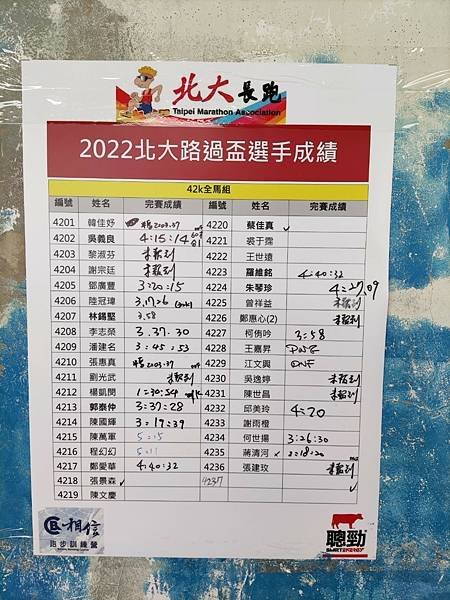 北大長跑
Taipei Marathon Association
2022北大路過盃選手成績
42k全馬組
編號 姓名 完賽成績 編號 姓名 完賽成績
4201 韓佳妤 4220 蔡佳真 ✓
4202 吳義良 4:15:14 4221 裘于霑
4203 黎淑芬 未報到 4222 王世遠
4204 謝宗廷 未報到 4223 羅維銘 4:40:32
4205 鄧廣豐 3:20:15 4224 朱琴珍 4:27.09
4206 陸冠瑋 3.17.26 4225 曾祥益 未報到
4207 林錫堅 3.58 4226 鄭惠心(2) 未報到
4208 李志榮 3.37.30 4227 柯侑吟 3:58
4209 潘建名 3:45:53 4228 王嘉昇 DNF
4210 張惠真 4229 江文興 DNF
4211 劉光武 未報到 4230 吳逸婷 未報到
4212 楊凱閔 1=30:54 4231 陳世昌 未報到
4213 郭泰仲 3:37:28 4232 邱美玲 4:20
4214 陳國輝 3:19:39 4233 謝雨橙
4215 陳萬軍 5:15 4234 何世揚 3:26:30
4216 程幻幻 5:11 4235 蔣清河 ✓ 3:18:20
4217 鄭愛華 4:40:32 4236 張建玫 未報到
4218 張景森 ✓ 4237 ✓
4219 陳文慶
相信
跑步訓練營
聰勁
SMARTENERGY